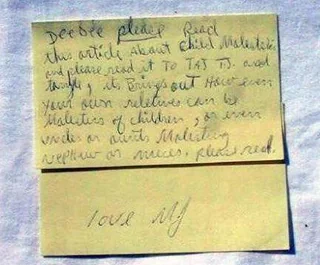 DeeDee please Read
this article about Child Molestation
and please read it TO TAJ TJ. and
Taryll, its Brings out How even
Your own relatives can be
Molesters of children, or even
uncles or aunts Molesting
nephew or nieces. please read.
love MJ